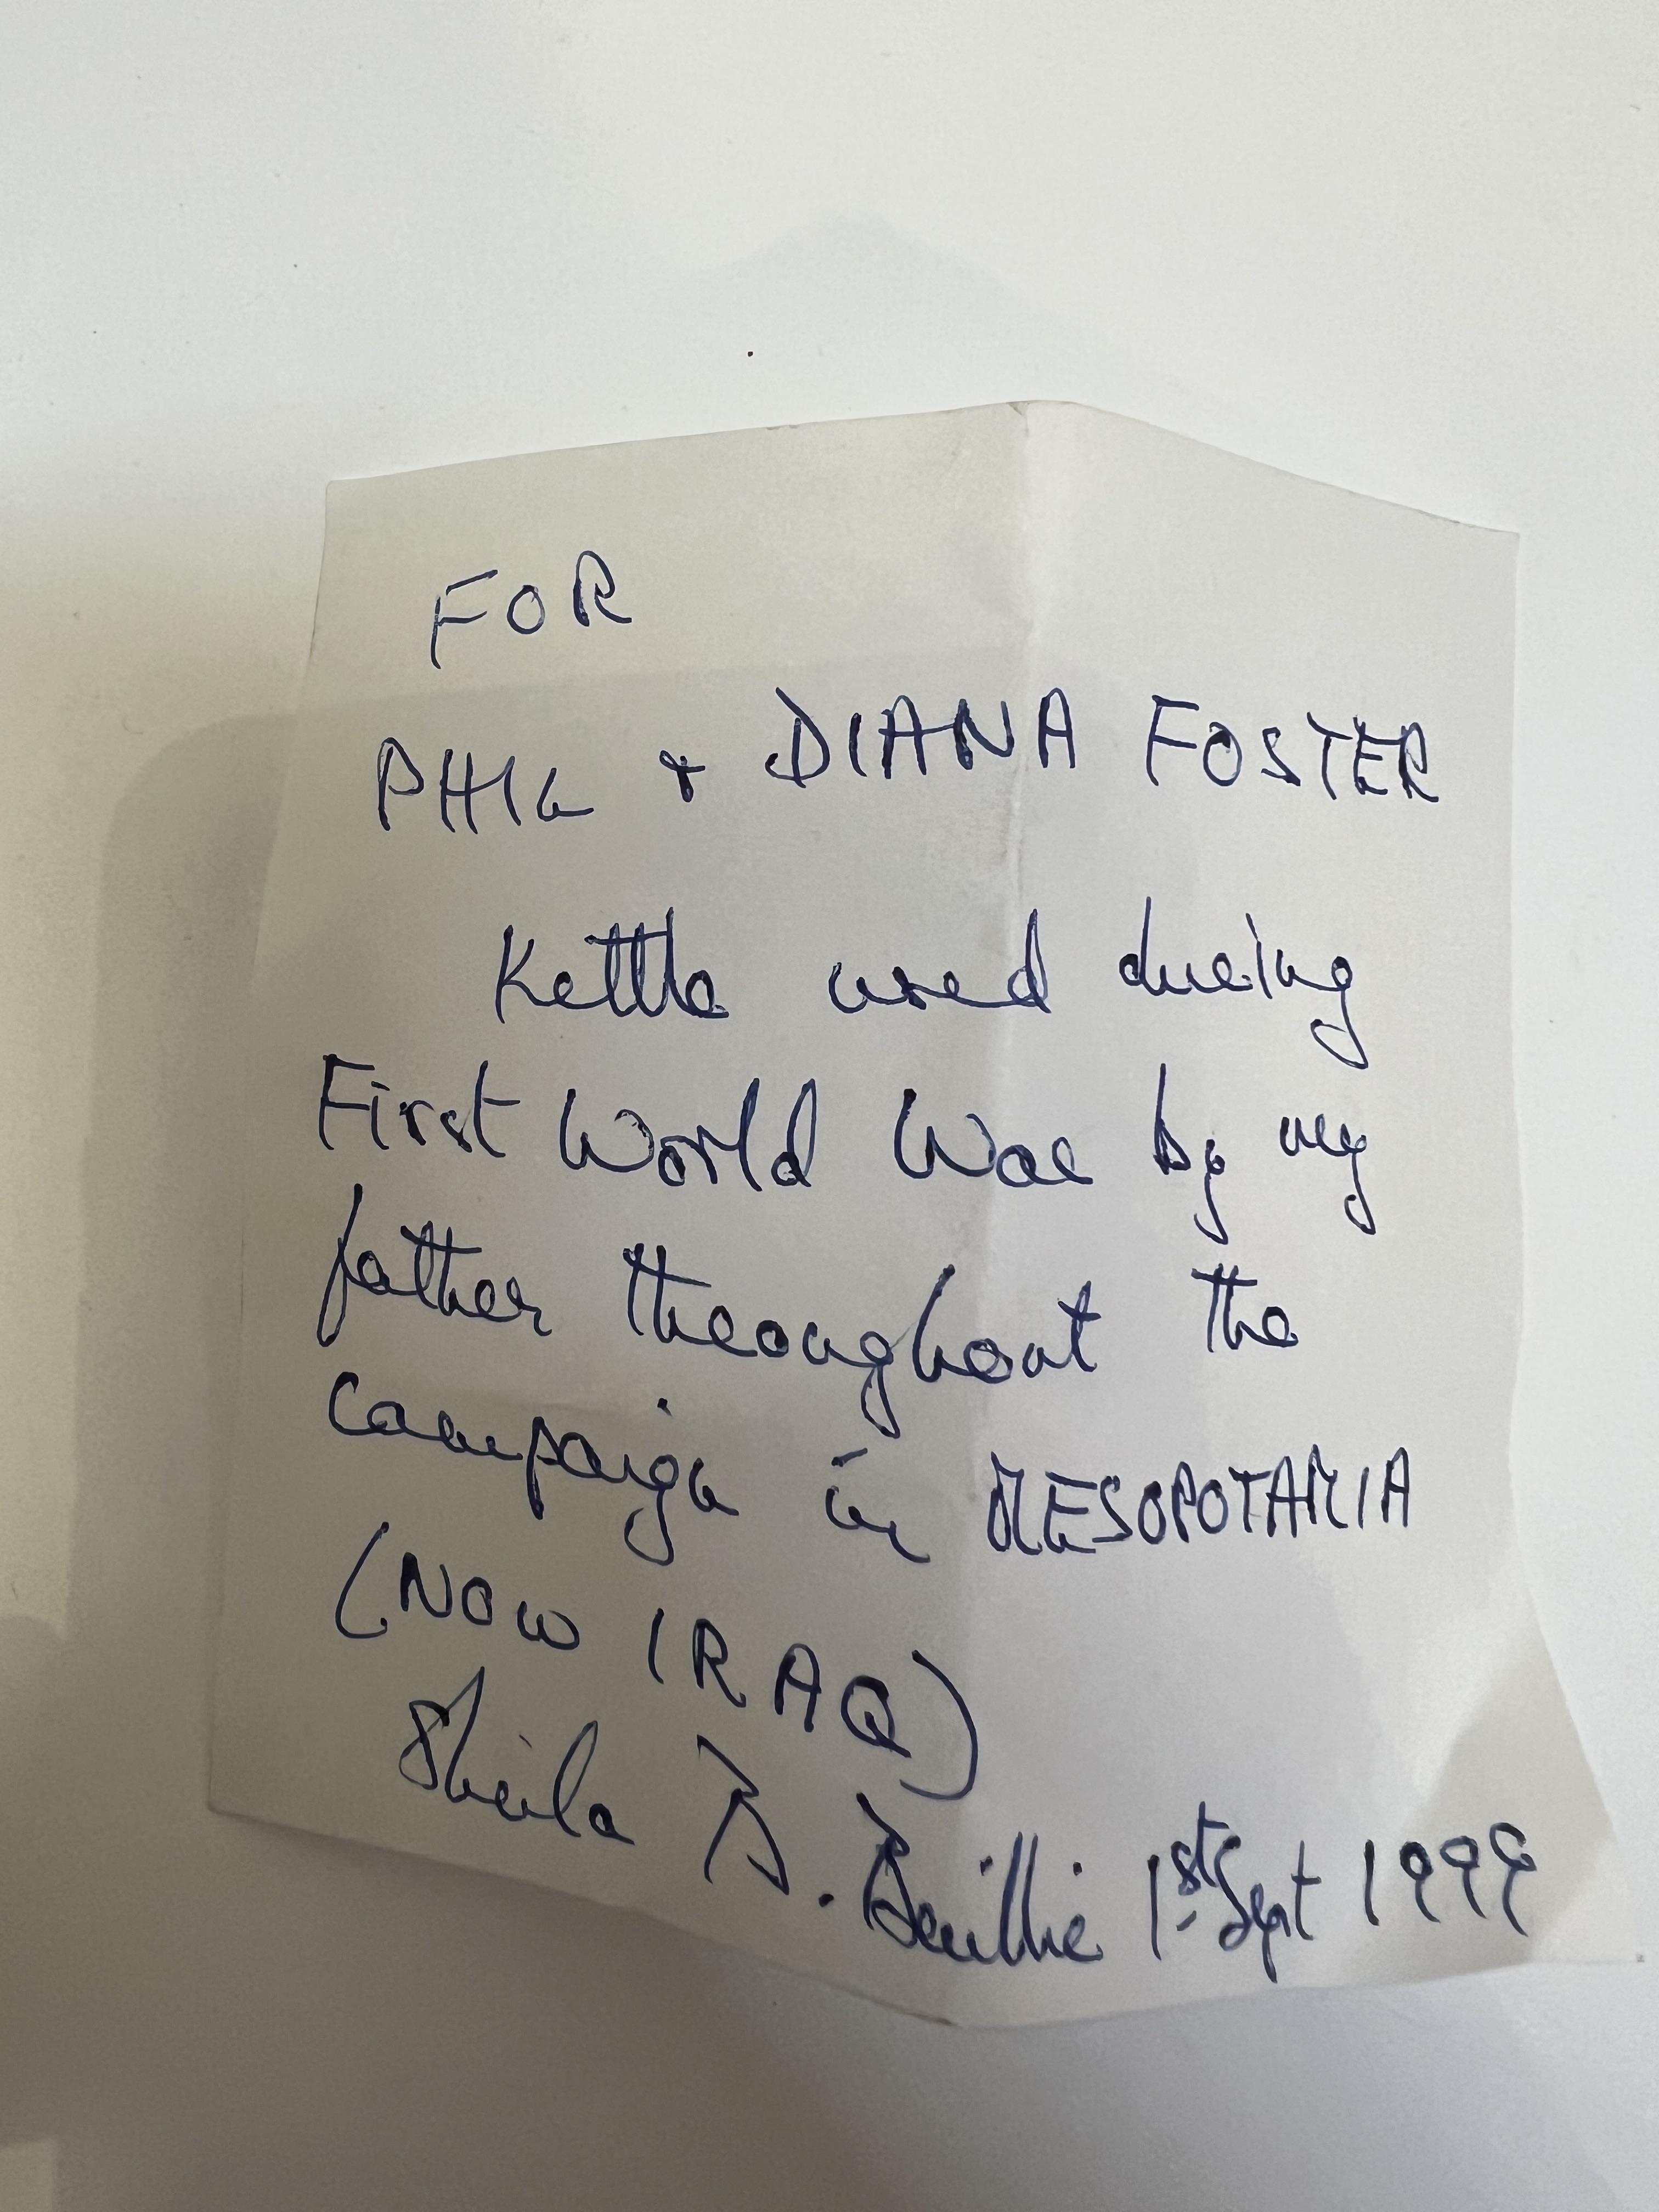 FOR
PHIL + DIANA FOSTER
Kettle used during
First World War by my
father throughout the
campaign in MESOPOTAMIA
(NOW IRAQ)
Sheila B. Baillie 1st Sept 1999